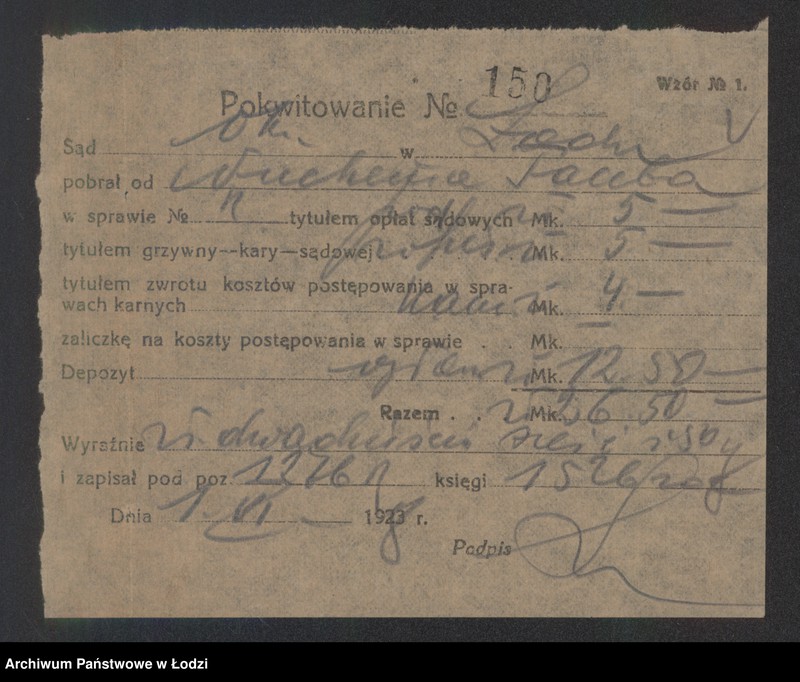 150
Wzór № 1.
Pokwitowanie №
Sąd Okr. w Łodzi
pobrał od
w sprawie № tytułem opłat sądowych Mk. 5 —
tytułem grzywny--kary—sądowej . Mk. 5 —
tytułem zwrotu kosztów postępowania w spra-
wach karnych Mk. 4 —
zaliczkę na koszty postępowania w sprawie . . Mk. —
Depozyt Mk. 12.50 —
Razem . . zł Mk. 26.50 —
Wyraźnie zł dwadzieścia sześć i 50
i zapisał pod poz. księgi
Dnia 1 VI 1923 r.
Podpis
Archiwum Państwowe w Łodzi